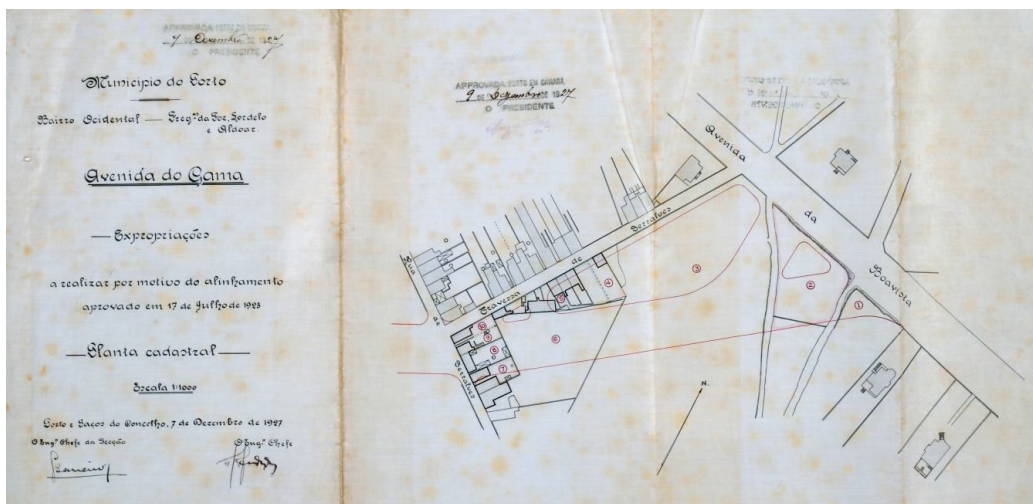 APPROVADA
7 Dezembro DE 1927
O PRESIDENTE
Municipio do Porto
Bairro Ocidental — Freg.as da Foz, Lordelo
e Aldoar.
Avenida do Gama
— Expropriações
a realizar por motivo do alinhamento
aprovado em 17 de Julho de 1923
— Planta cadastral —
Escala 1:1000
Porto e Paços do Concelho, 7 de Dezembro de 1927
O Eng.º Chefe da Secção
O Eng.º Chefe
APPROVADA PORTO EM CAMARA,
9 DE Dezembro DE 1927
O PRESIDENTE
Avenida
da
Boavista
Travessa
de
Serralves
Rua
de
Serralves
1
2
3
4
5
6
7
8
9
10
N.